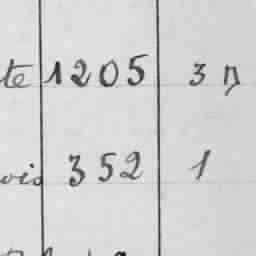 te 1205 3 n
vis 352 1